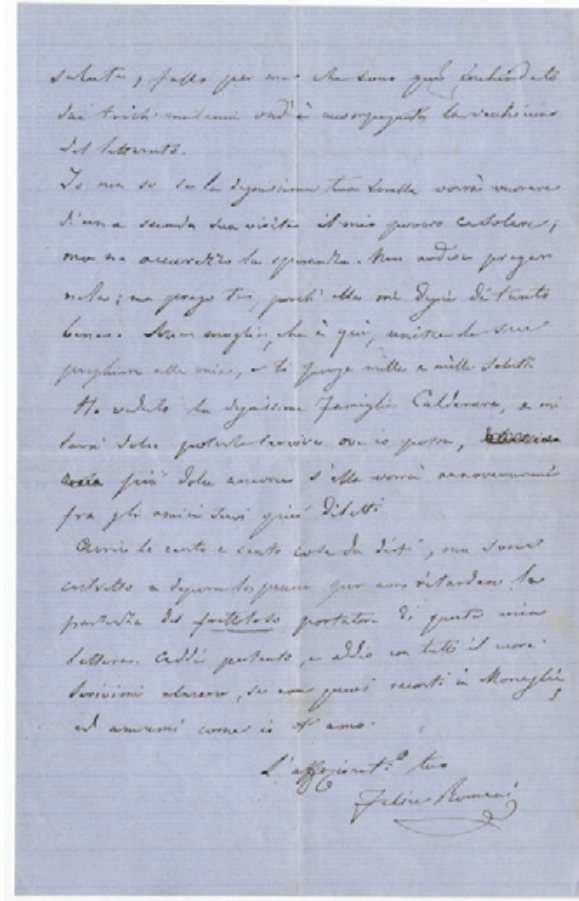 salute, fallo per me che sono qui inchiodato
dai tristi malanni ond'è accompagnata la vecchiezza
del letterato.
Io non so se la degnissima tua sorella vorrà onorare
d'una seconda sua visita il mio povero casolare;
ma ne accarezzo la speranza. Non ardisco pregar
nela; ma prego te, perchè ella mi degni di tanto
bene. Mia moglie, che è qui, unisce le sue
preghiere alle mie, e ti porge mille e mille saluti.
Ho veduto la degnissima famiglia Calderara, e mi
sarà dolce poterla servire ove io possa,
più dolce ancora s'ella vorrà annoverarmi
fra gli amici suoi più diletti.
Avrei le cento e cento cose da dirti, ma sono
costretto a depor la penna per non ritardare la
partenza del frettoloso portatore di questa mia
lettera. Cedo pertanto, e addio con tutto il cuore.
Scrivimi almeno, se non puoi recarti a Moneglia,
ed amami come io t'amo.
L'affezionat.o tuo
Felice Romani